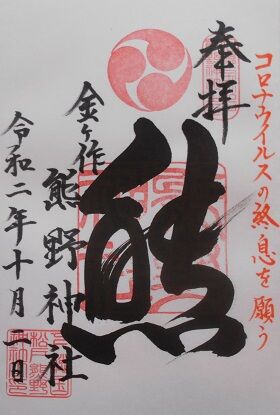 コロナウイルスの終息を願う
奉拝
熊
金ヶ作
熊野神社
令和二年十月二日